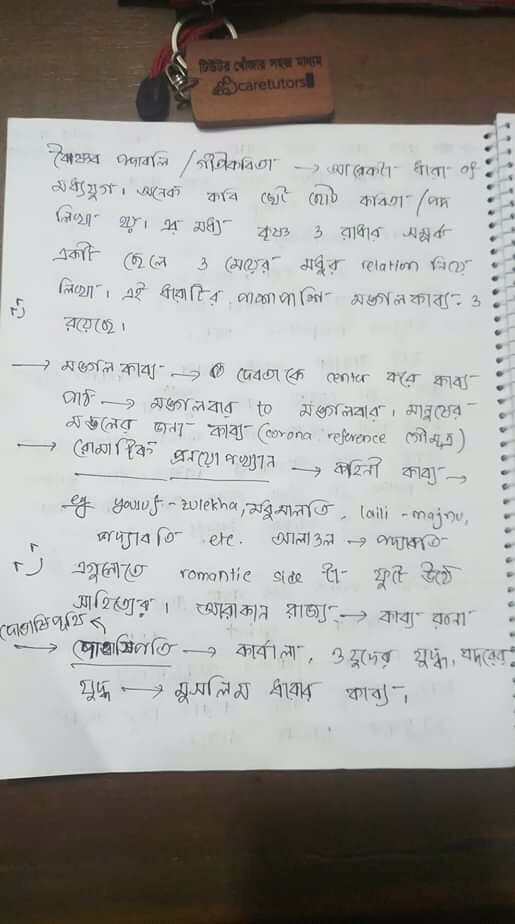 টিউটর খোঁজার সহজ মাধ্যম
caretutors
বৈষ্ণব পদাবলি / গীতিকবিতা → আরেকটা ধারা of
মধ্যযুগ। অনেক কবি ছোট ছোট কবিতা / পদ
লিখা হয়। এর মধ্য কৃষ্ণ ও রাধার সম্পর্ক
একটা ছেলে ও মেয়ের মধুর relation নিয়ে
লিখা। এই ধারাটির পাশাপাশি মঙ্গলকাব্য ও
রয়েছে।
→ মঙ্গল কাব্য → দেবতাকে center করে কাব্য
পাঠ → মঙ্গলবার to মঙ্গলবার। মানুষের
মঙ্গলের জন্য কাব্য (corona reference গোমূত্র)
→ রোমান্টিক প্রনয়োপখ্যান → কাহিনী কাব্য →
eg yousuf - zulekha, মধুমালতি, laili - majnu,
পদ্মাবতি etc. আলাওল → পদ্মাবতি
এগুলোতে romantic side টা ফুটে উঠে
সাহিত্যের। আরাকান রাজ্য → কাব্য রচনা
দোভাষিপুথি
→ → কারবালা, ওহুদের যুদ্ধ, বদরের
যুদ্ধ → মুসলিম ধারার কাব্য।